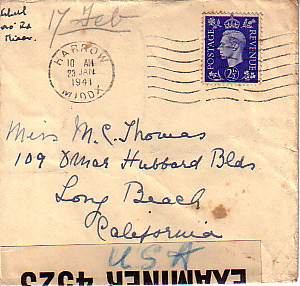 17 Feb
HARROW
10 AM
23 JAN
1941
MIDDX
POSTAGE
REVENUE
2½D
Miss M. C. Thomas
109 Omar Hubbard Blds
Long Beach
California
USA
EXAMINER 4523